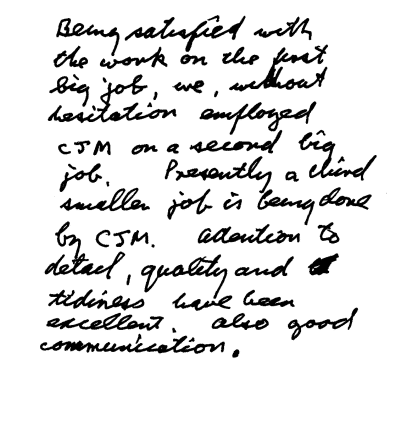 Being satisfied with
the work on the first
big job, we, without
hesitation employed
CJM on a second big
job. Presently a third
smaller job is being done
by CJM. Attention to
detail, quality and
tidiness have been
excellent. also good
communication.